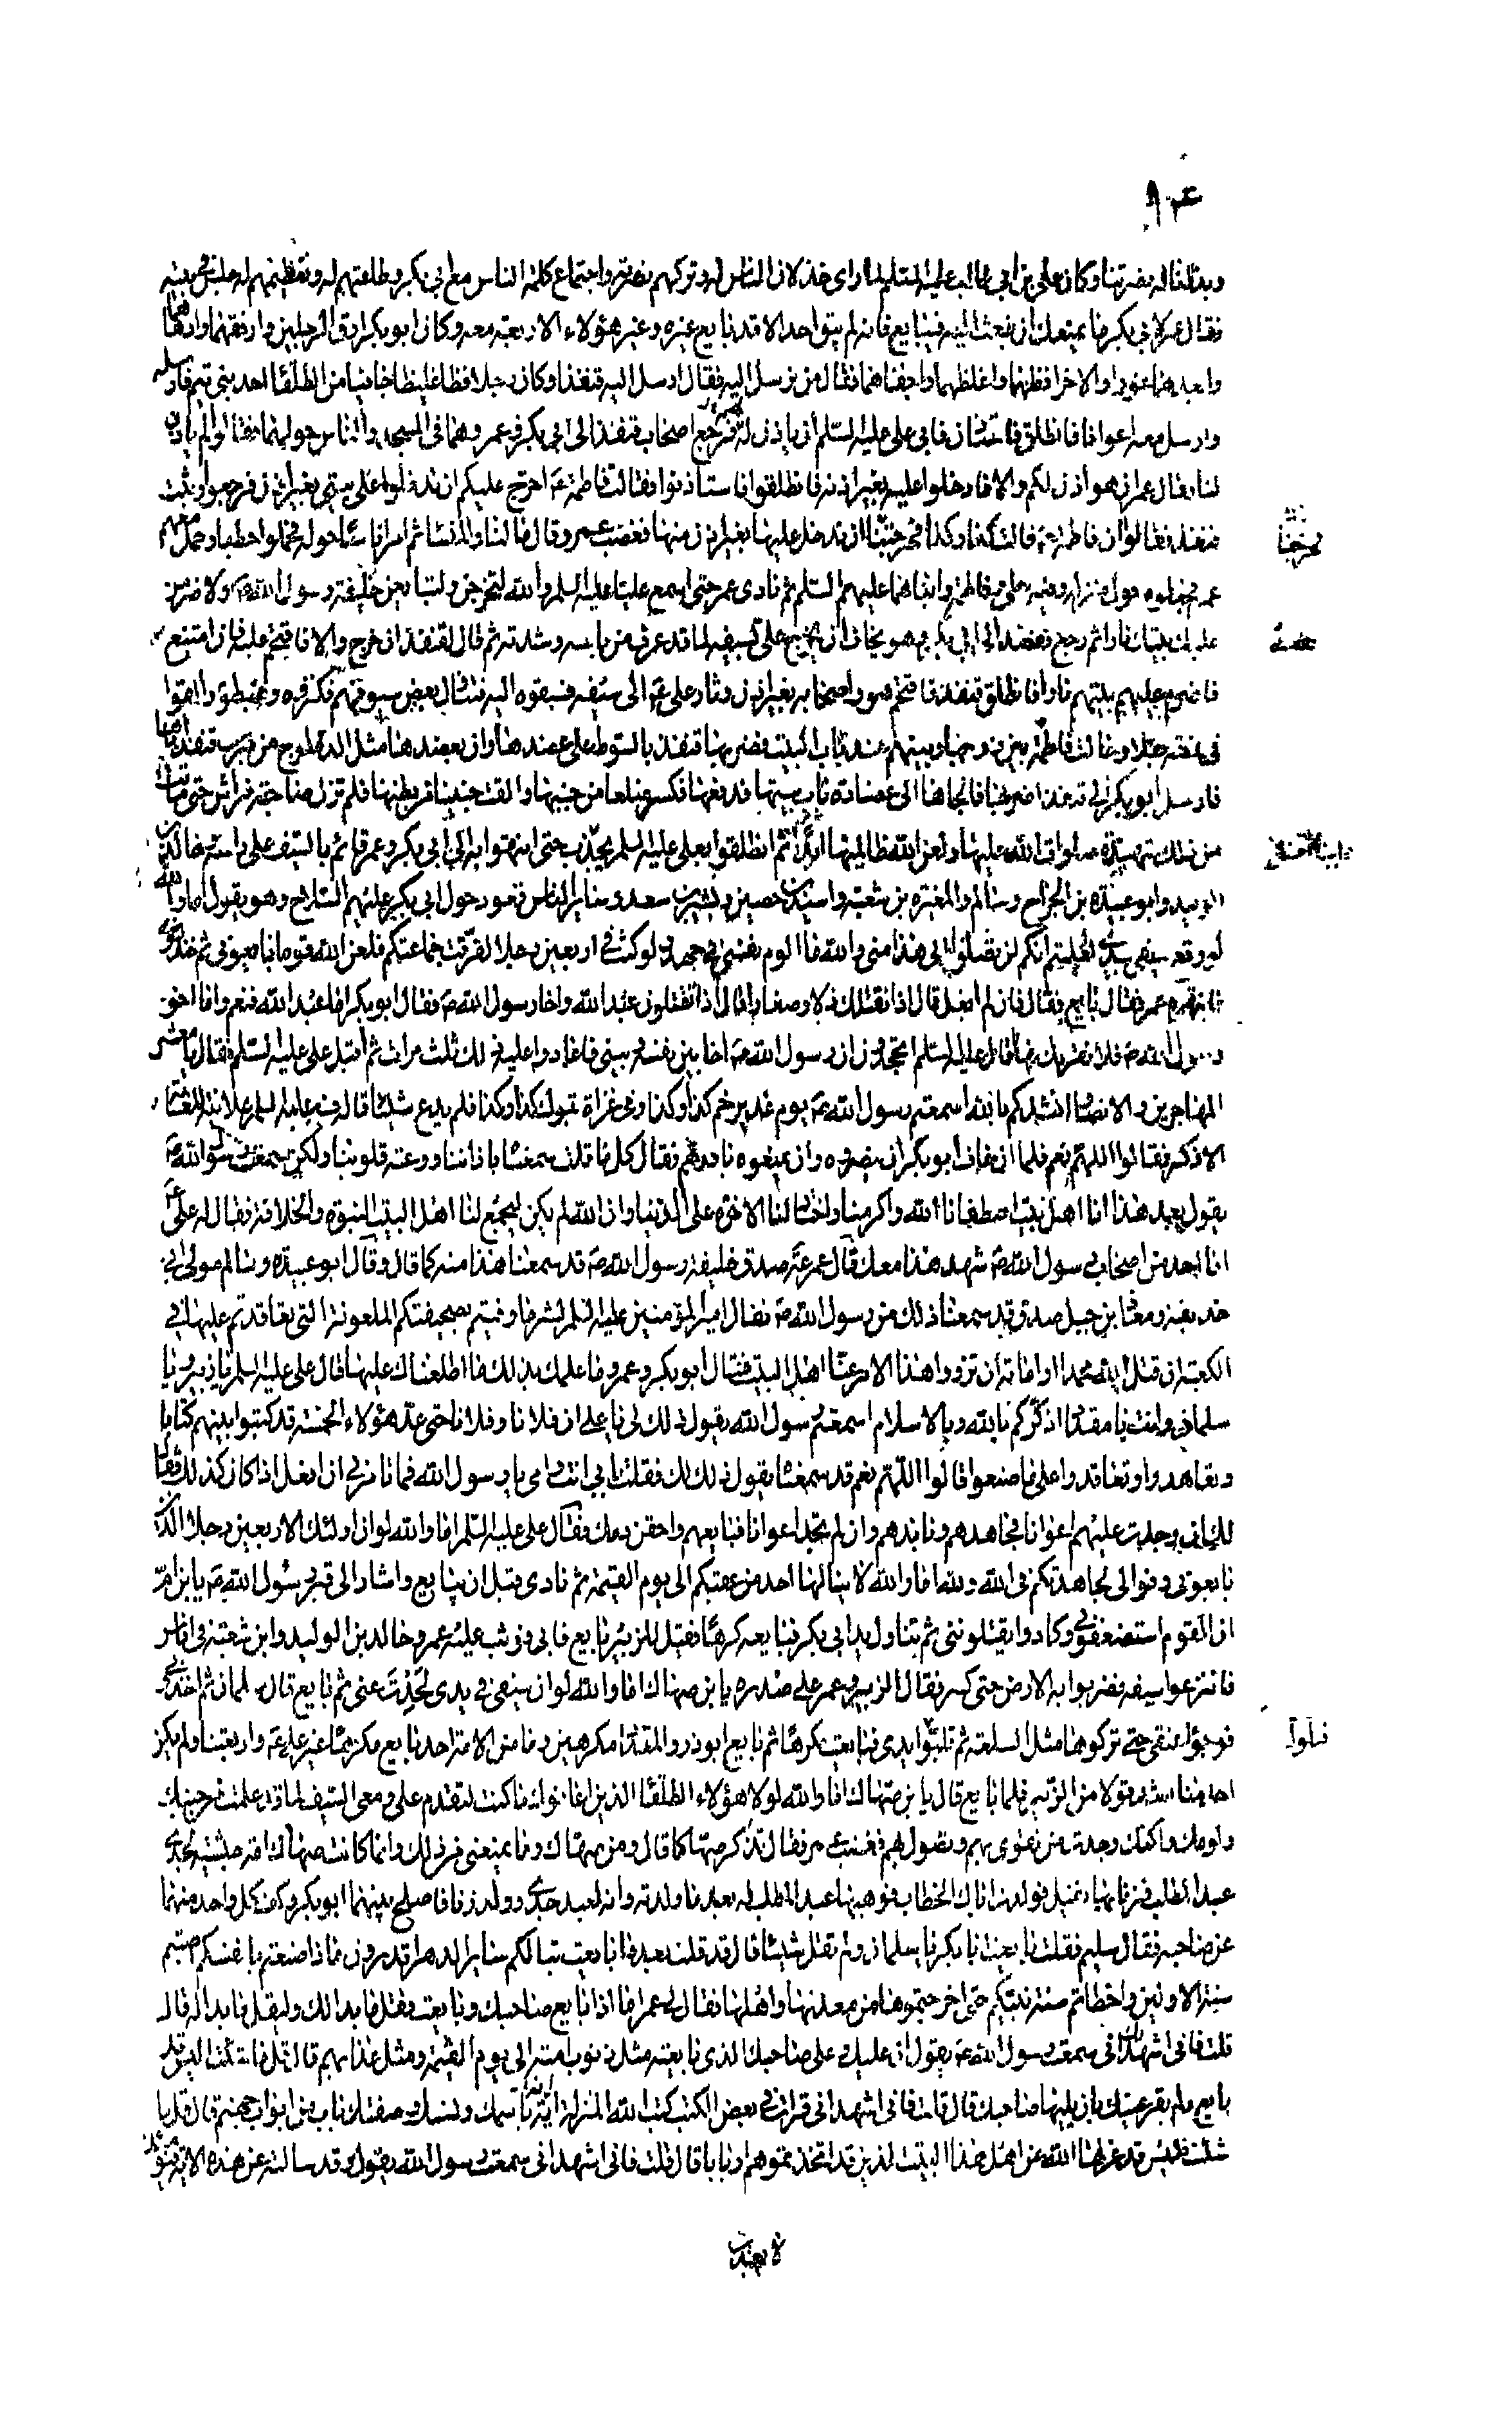 وبذلنا له نصرتنا وكان علي بن ابي طالب عليه السلم لما راى خذلان الناس له وتركهم نصرته واجتماع كلمة الناس مع ابي بكر وطاعتهم له وتعظيمهم له جلس في بيته
فقال عمر لابي بكر ما يمنعك ان تبعث اليه فيبايع فانه لم يبق احد الا قد بايع غيره وغير هؤلاء الاربعة معه وكان ابو بكر ارق الرجلين وارفقهما وادهاهما
وابعدهما غورا والاخر افظهما واغلظهما واجفاهما فقال من نرسل اليه فقال ارسل اليه قنفذا وكان رجلا فظا غليظا جافيا من الطلقا احد بني تيم فارسله
وارسل معه اعوانا فانطلق فاستاذن فابى علي عليه السلم ان ياذن له فرجع اصحاب قنفذ الى ابي بكر وعمر وهما في المسجد والناس حولهما فقالوا لم ياذن
لنا فقال عمر ان هو اذن لكم والا فادخلوا عليه بغير اذنه فانطلقوا فاستاذنوا فقالت فاطمة ع احرج عليكم ان تدخلوا على بيتي بغير اذن فرجعوا وثبت
قنفذ فقالوا ان فاطمة ع قالت كذا وكذا فحرجتنا ان ندخل عليها بغير اذن منها فغضب عمر وقال ما لنا والنسا ثم امر اناسا حوله فحملوا حطبا وحمل معهم
عمر فجعلوه حول منزله وفيه علي وفاطمة وابناهما عليهم السلم ثم نادى عمر حتى اسمع عليا عليه السلم والله لتخرجن ولتبايعن خليفة رسول الله ص ولاضرمن
عليك بيتك نارا ثم رجع قنفذ الى ابي بكر وهو يخاف ان يخرج علي بسيفه لما قد عرف من باسه وشدته ثم قال لقنفذ ان خرج والا فاقتحم عليه فان امتنع
فاضرم عليهم بيتهم نارا فانطلق قنفذ فاقتحم هو واصحابه بغير اذن وثار علي ع الى سيفه فسبقوه اليه فتناول بعض سيوفهم فكثروه وضبطوه والقوا
في عنقه حبلا وحالت فاطمة بين زوجها وبينهم عند باب البيت فضربها قنفذ بالسوط على عضدها وان بعضدها مثل الدملوج من ضرب قنفذ اياها
فارسل ابو بكر الى قنفذ اضربها فالجاها الى عضادة باب بيتها فدفعها فكسر ضلعا من جنبها والقت جنينا من بطنها فلم تزل صاحبة فراش حتى ماتت
من ذلك شهيدة صلوات الله عليها ولعن الله ظالميها ابدا ثم انطلقوا بعلي عليه السلم يجذب حتى انتهوا به الى ابي بكر وعمر قائم بالسيف على راسه خالد بن
الوليد وابو عبيدة بن الجراح وسالم والمغيرة بن شعبة واسيد بن حصين وبشير بن سعد وساير الناس قعود حول ابي بكر عليهم السلاح وهو يقول اما والله
لو وقع سيفي بيدي لعلمتم انكم لن تصلوا الى هذا مني والله ما الوم نفسي في جهد ولو كنت في اربعين رجلا لفرقت جماعتكم فلعن الله قوما بايعوني ثم خذلوني
فانتهره عمر فقال بايع فقال فان لم افعل قال اذا نقتلك ذلا وصغارا قال اذا تقتلون عبد الله واخا رسول الله ص فقال ابو بكر اما عبد الله فنعم واما اخو
رسول الله ص فلا نقر بك بها فقال عليه السلم اتجحدون ان رسول الله ص اخا بين نفسه وبيني فاعادوا عليه ذلك ثلث مرات ثم اقبل علي عليه السلم فقال يا معشر
المهاجرين والانصار انشدكم بالله اسمعتم رسول الله ص يوم غدير خم كذا وكذا وفي غزاة تبوك كذا وكذا فلم يدع شيئا قاله فيه عليه السلم علانية للعامة
الا ذكره فقالوا اللهم نعم فلما ان خاف ابو بكر ان ينصروه وان يمنعوه بادرهم فقال كل ما قلت سمعناه باذاننا ووعته قلوبنا ولكن سمعت رسول الله ص
يقول بعد هذا انا اهل بيت اصطفانا الله واكرمنا واختار لنا الاخرة على الدنيا وان الله لم يكن ليجمع لنا اهل البيت النبوة والخلافة فقال له علي ع
اما احد من اصحاب رسول الله ص شهد هذا معك قال عمر صدق خليفة رسول الله ص قد سمعنا هذا منه كما قال وقال ابو عبيدة وسالم مولى ابي
حذيفة ومعاذ بن جبل صدق قد سمعنا ذلك من رسول الله ص فقال امير المؤمنين عليه السلم لشد ما وفيتم بصحيفتكم الملعونة التي تعاقدتم عليها في
الكعبة ان قتل الله محمدا او اماته ان تزووا هذا الامر عنا اهل البيت فقال ابو بكر وعمر وما علمك بذلك ما اطلعناك عليها قال علي عليه السلم يا زبير ويا
سلمان وانت يا مقداد اذكركم بالله وبالاسلام اسمعتم رسول الله يقول ذلك لي يا علي ان فلانا وفلانا حتى عد هؤلاء الخمسة قد كتبوا بينهم كتابا
وتعاهدوا وتعاقدوا على ما صنعوا قالوا اللهم نعم قد سمعناه يقول ذلك لك فقلت بابي انت وامي يا رسول الله فما تامرني ان افعل اذا كان كذلك فقال
لك ان وجدت عليهم اعوانا فجاهدهم ونابذهم وان لم تجد اعوانا فبايعهم واحقن دمك فقال علي عليه السلم اما والله لو ان اولئك الاربعين رجلا الذين
بايعوني وفوا لي لجاهدتكم في الله ولله اما والله لا ينالها احد من عقبكم الى يوم القيمة ثم نادى قبل ان يبايع واشار الى قبر رسول الله ص يا بن ام
ان القوم استضعفوني وكادوا يقتلونني ثم تناول يد ابي بكر فبايعه كرها فقيل للزبير بايع فابى ووثب عليه عمر وخالد بن الوليد وابن شعبة في اناس
فانتزعوا سيفه فضربوا به الارض حتى كسر فقال الزبير وعمر على صدره يا بن صهاك اما والله لو ان سيفي في يدي لحدت عني ثم بايع قال سلمان ثم اخذوني
فوجؤا عنقي حتى تركوها مثل السلعة ثم فلتوا يدي فبايعت كرها ثم بايع ابو ذر والمقداد مكرهين وما من الامة احد بايع مكرها غير علي ع واربعتنا ولم يكن
احد منا اشد قولا من الزبير فلما بايع قال يا بن صهاك اما والله لولا هؤلاء الطلقا الذين اعانوك ما كنت لتقدم علي ومعي السيف لما قد علمت من جبنك
ولومك ولكنك وجدت من تقوى بهم وتصول بهم فغضب عمر فقال تذكر صهاكا قال ومن صهاك وما يمنعني من ذلك وانما كانت صهاك امة حبشية لجدي
عبد المطلب فزنا بها نفيل فولدت اباك الخطاب فوهبها عبد المطلب له بعد ما ولدته وانه لعبد جدي وولد زنا فاصلح بينهما ابو بكر وكف كل واحد منهما
عن صاحبه فقال سليم فقلت بايعت ابا بكر يا سلمان ولم تقل شيئا قال قد قلت بعد ما بايعت تبا لكم ساير الدهر اتدرون ماذا صنعتم بانفسكم اصبتم
سنة الاولين واخطاتم سنة نبيكم حتى اخرجتموها من معدنها واهلها فقال لي عمر اما اذا بايع صاحبك وبايعت فقل ما بدا لك وليقل ما بدا له قال
قلت فاني اشهد اني سمعت رسول الله ص يقول ان عليك وعلى صاحبك الذي بايعته مثل ذنوب امته الى يوم القيمة ومثل عذابهم قال قل ما شئت اليس قد
بايع ولم يقر عينك بان يليها صاحبك قال قلت فاني اشهد اني قرات في بعض الكتب كتب الله المنزلة انه باسمك ونسبك وصفتك باب من ابواب جهنم قال قل ما
شئت اليس قد عزلها الله عن اهل هذا البيت الذين قد اتخذتموهم اربابا قال قلت فاني اشهد اني سمعت رسول الله يقول وقد سالته عن هذه الاية فيومئذ
لا يعذب